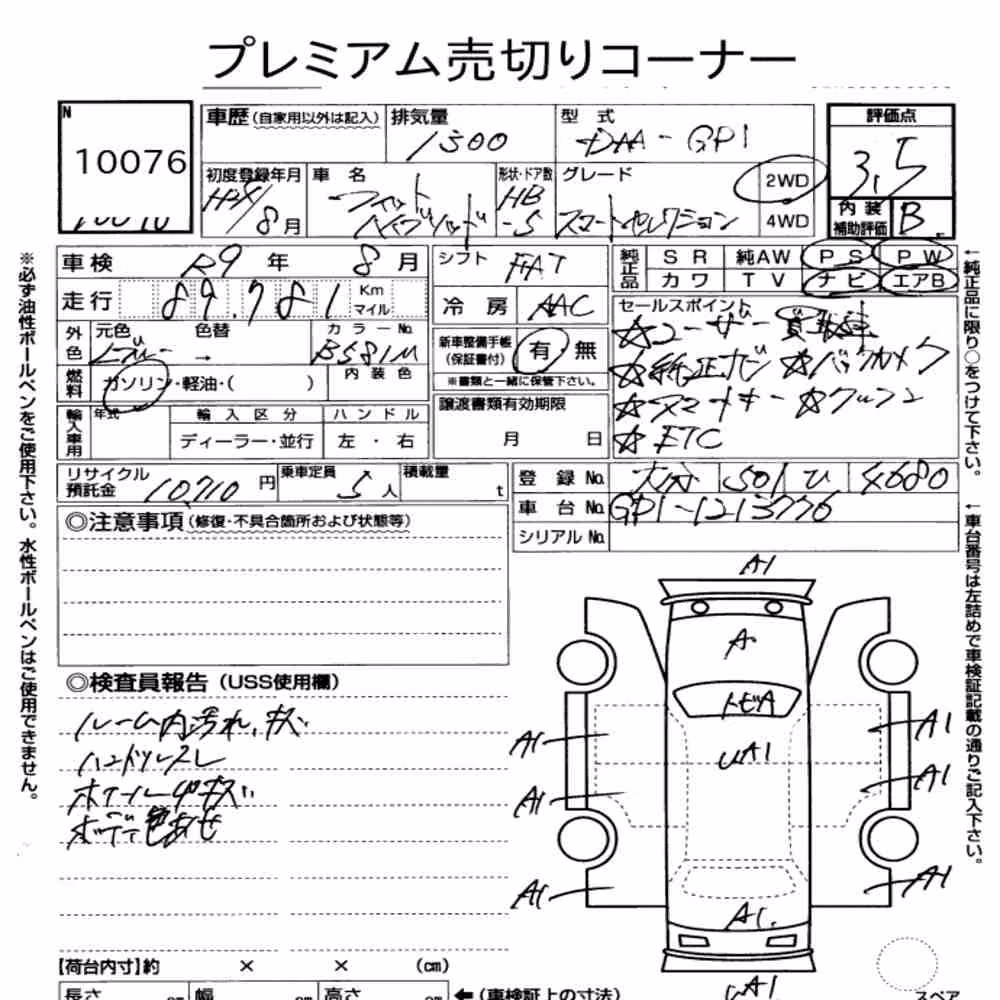 プレミアム売切りコーナー
N
10076
車歴(自家用以外は記入)
排気量
1300
型式
DAA-GP1
評価点
3.5
初度登録年月
H25/8月
車名
フィット
ハイブリッド
形状・ドア数
HB
-5
グレード
スマートセレクション
2WD
4WD
内装
補助評価
B
車検
R9年8月
シフト
FAT
純正品
SR
純AW
PS
PW
カワ
TV
ナビ
エアB
走行
89,781
Km
マイル
冷房
AAC
セールスポイント
☆ユーザー買取車
☆純正ナビ ☆バックカメラ
☆スマートキー ☆クルコン
☆ETC
外色
元色
色替
カラーNo.
→
B581M
新車整備手帳
(保証書付)
有・無
※書類と一緒に保管下さい。
燃料
ガソリン・軽油・( )
内装色
譲渡書類有効期限
月 日
輸入車用
年式
輸入区分
ハンドル
ディーラー・並行
左・右
リサイクル
預託金
10,710円
乗車定員
5人
積載量
t
登録No.
大分 501 ひ 4680
車台No.
GP1-1213776
シリアルNo.
◎注意事項(修復・不具合箇所および状態等)
◎検査員報告(USS使用欄)
ルーム内汚れ、キズ
ハンドルスレ
ホイール4キズ
ボディ色あせ
A1
A
トビA
UA1
A1
A1
A1
A1
A1
A1
A1.
UA1
スペア
【荷台内寸】約 × × (cm)
長さ cm 幅 cm 高さ cm ←(車検証上の寸法)
※必ず油性ボールペンをご使用下さい。水性ボールペンはご使用できません。
←純正品に限り○をつけて下さい。
←車台番号は左詰めで車検証記載の通りご記入下さい。